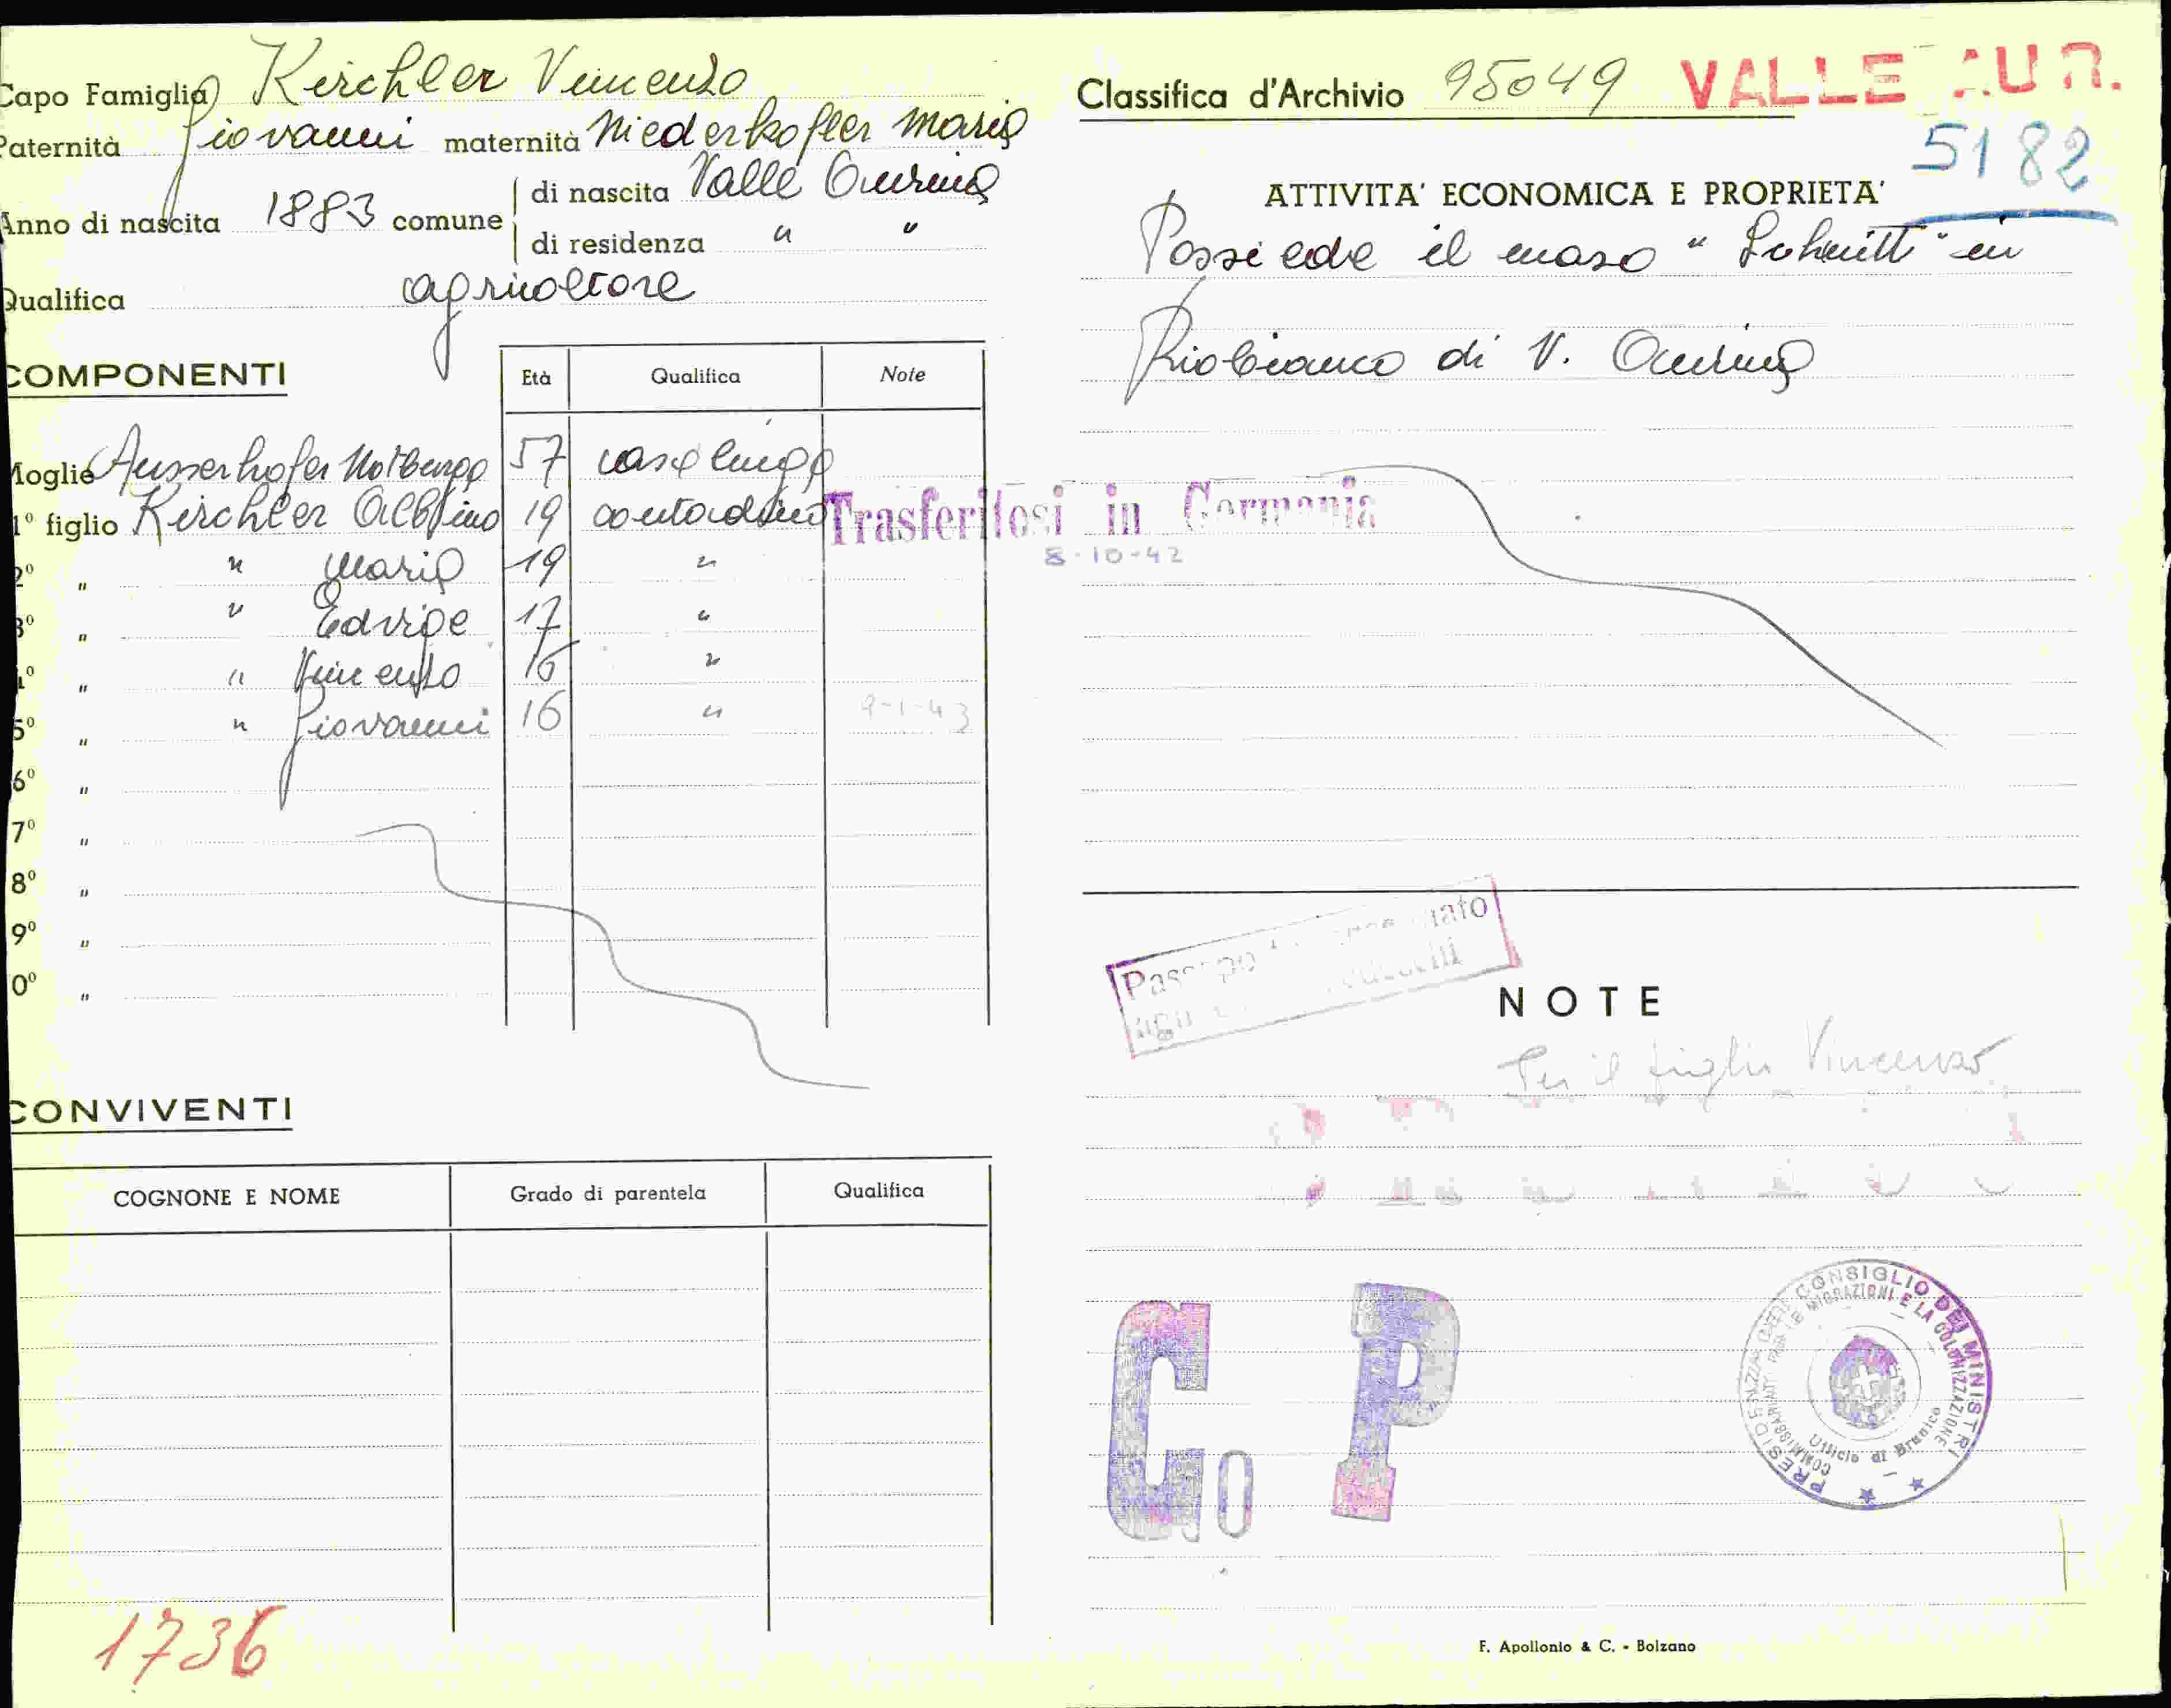 Capo Famiglia Kirchler Vincenzo
Paternità Giovanni maternità Niederkofler Maria
Anno di nascita 1883 comune di nascita Valle Aurina
di residenza " "
Qualifica agricoltore
COMPONENTI Età Qualifica Note
Moglie Ausserhofer Notburga 57 casalinga
1º figlio Kirchler Albino 19 contadino Trasferitosi in Germania
8-10-42
2º " " Maria 19 "
3º " " Edvige 17 "
4º " " Vincenzo 16 "
5º " " Giovanni 16 " 9-1-43
6º "
7º "
8º "
9º "
0º "
CONVIVENTI
COGNONE E NOME Grado di parentela Qualifica
1736
Classifica d'Archivio 95049 VALLE AUR.
5182
ATTIVITA' ECONOMICA E PROPRIETA'
Possiede il maso "Schmitt" in
Riobianco di V. Aurina
NOTE
Per il figlio Vincenzo
Co P
PRESIDENZA DEL CONSIGLIO DEI MINISTRI
COMMISSARIATO PER LE MIGRAZIONI E LA COLONIZZAZIONE
Ufficio di Brunico
F. Apollonio & C. - Bolzano